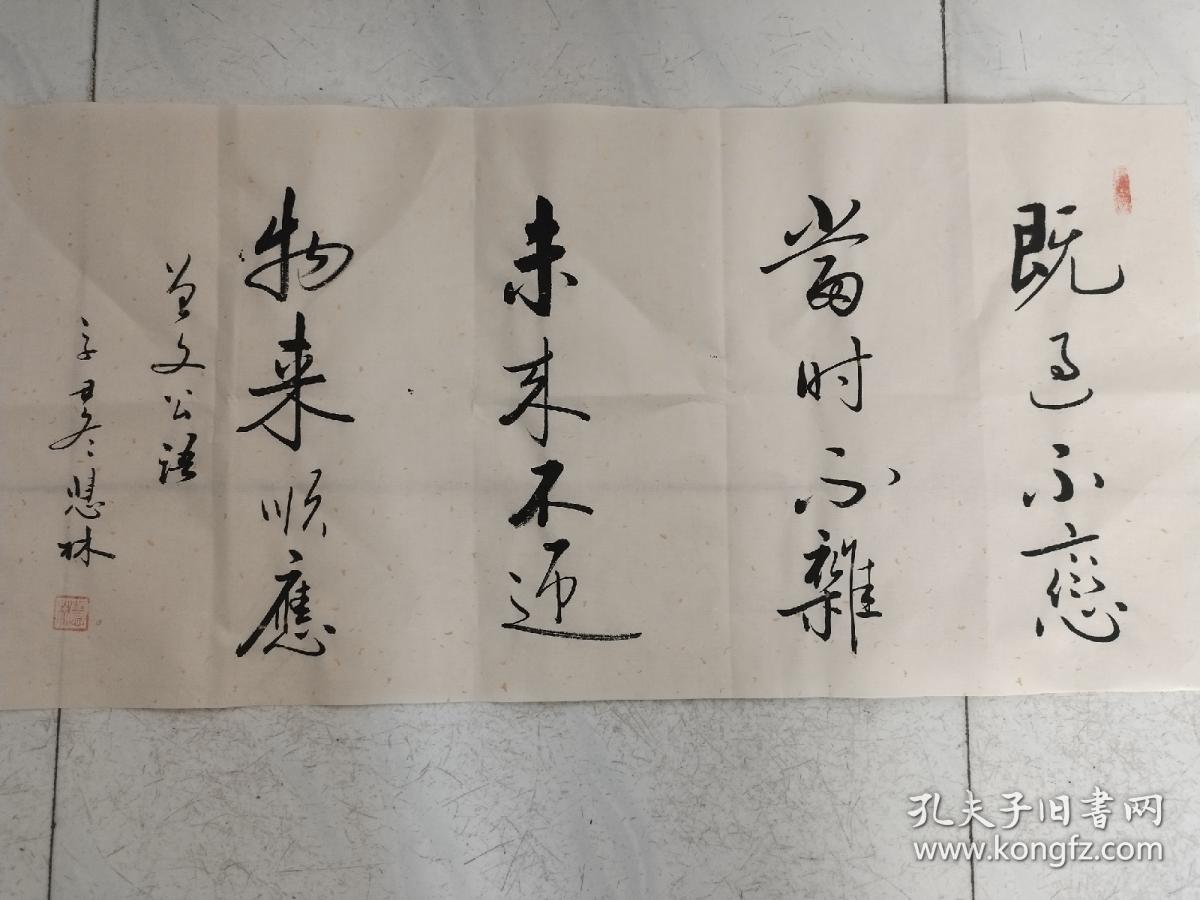 既过不恋
当时不雜
未来不迎
物来顺應
曾文公语
慧林
孔夫子旧書网
www.kongfz.com